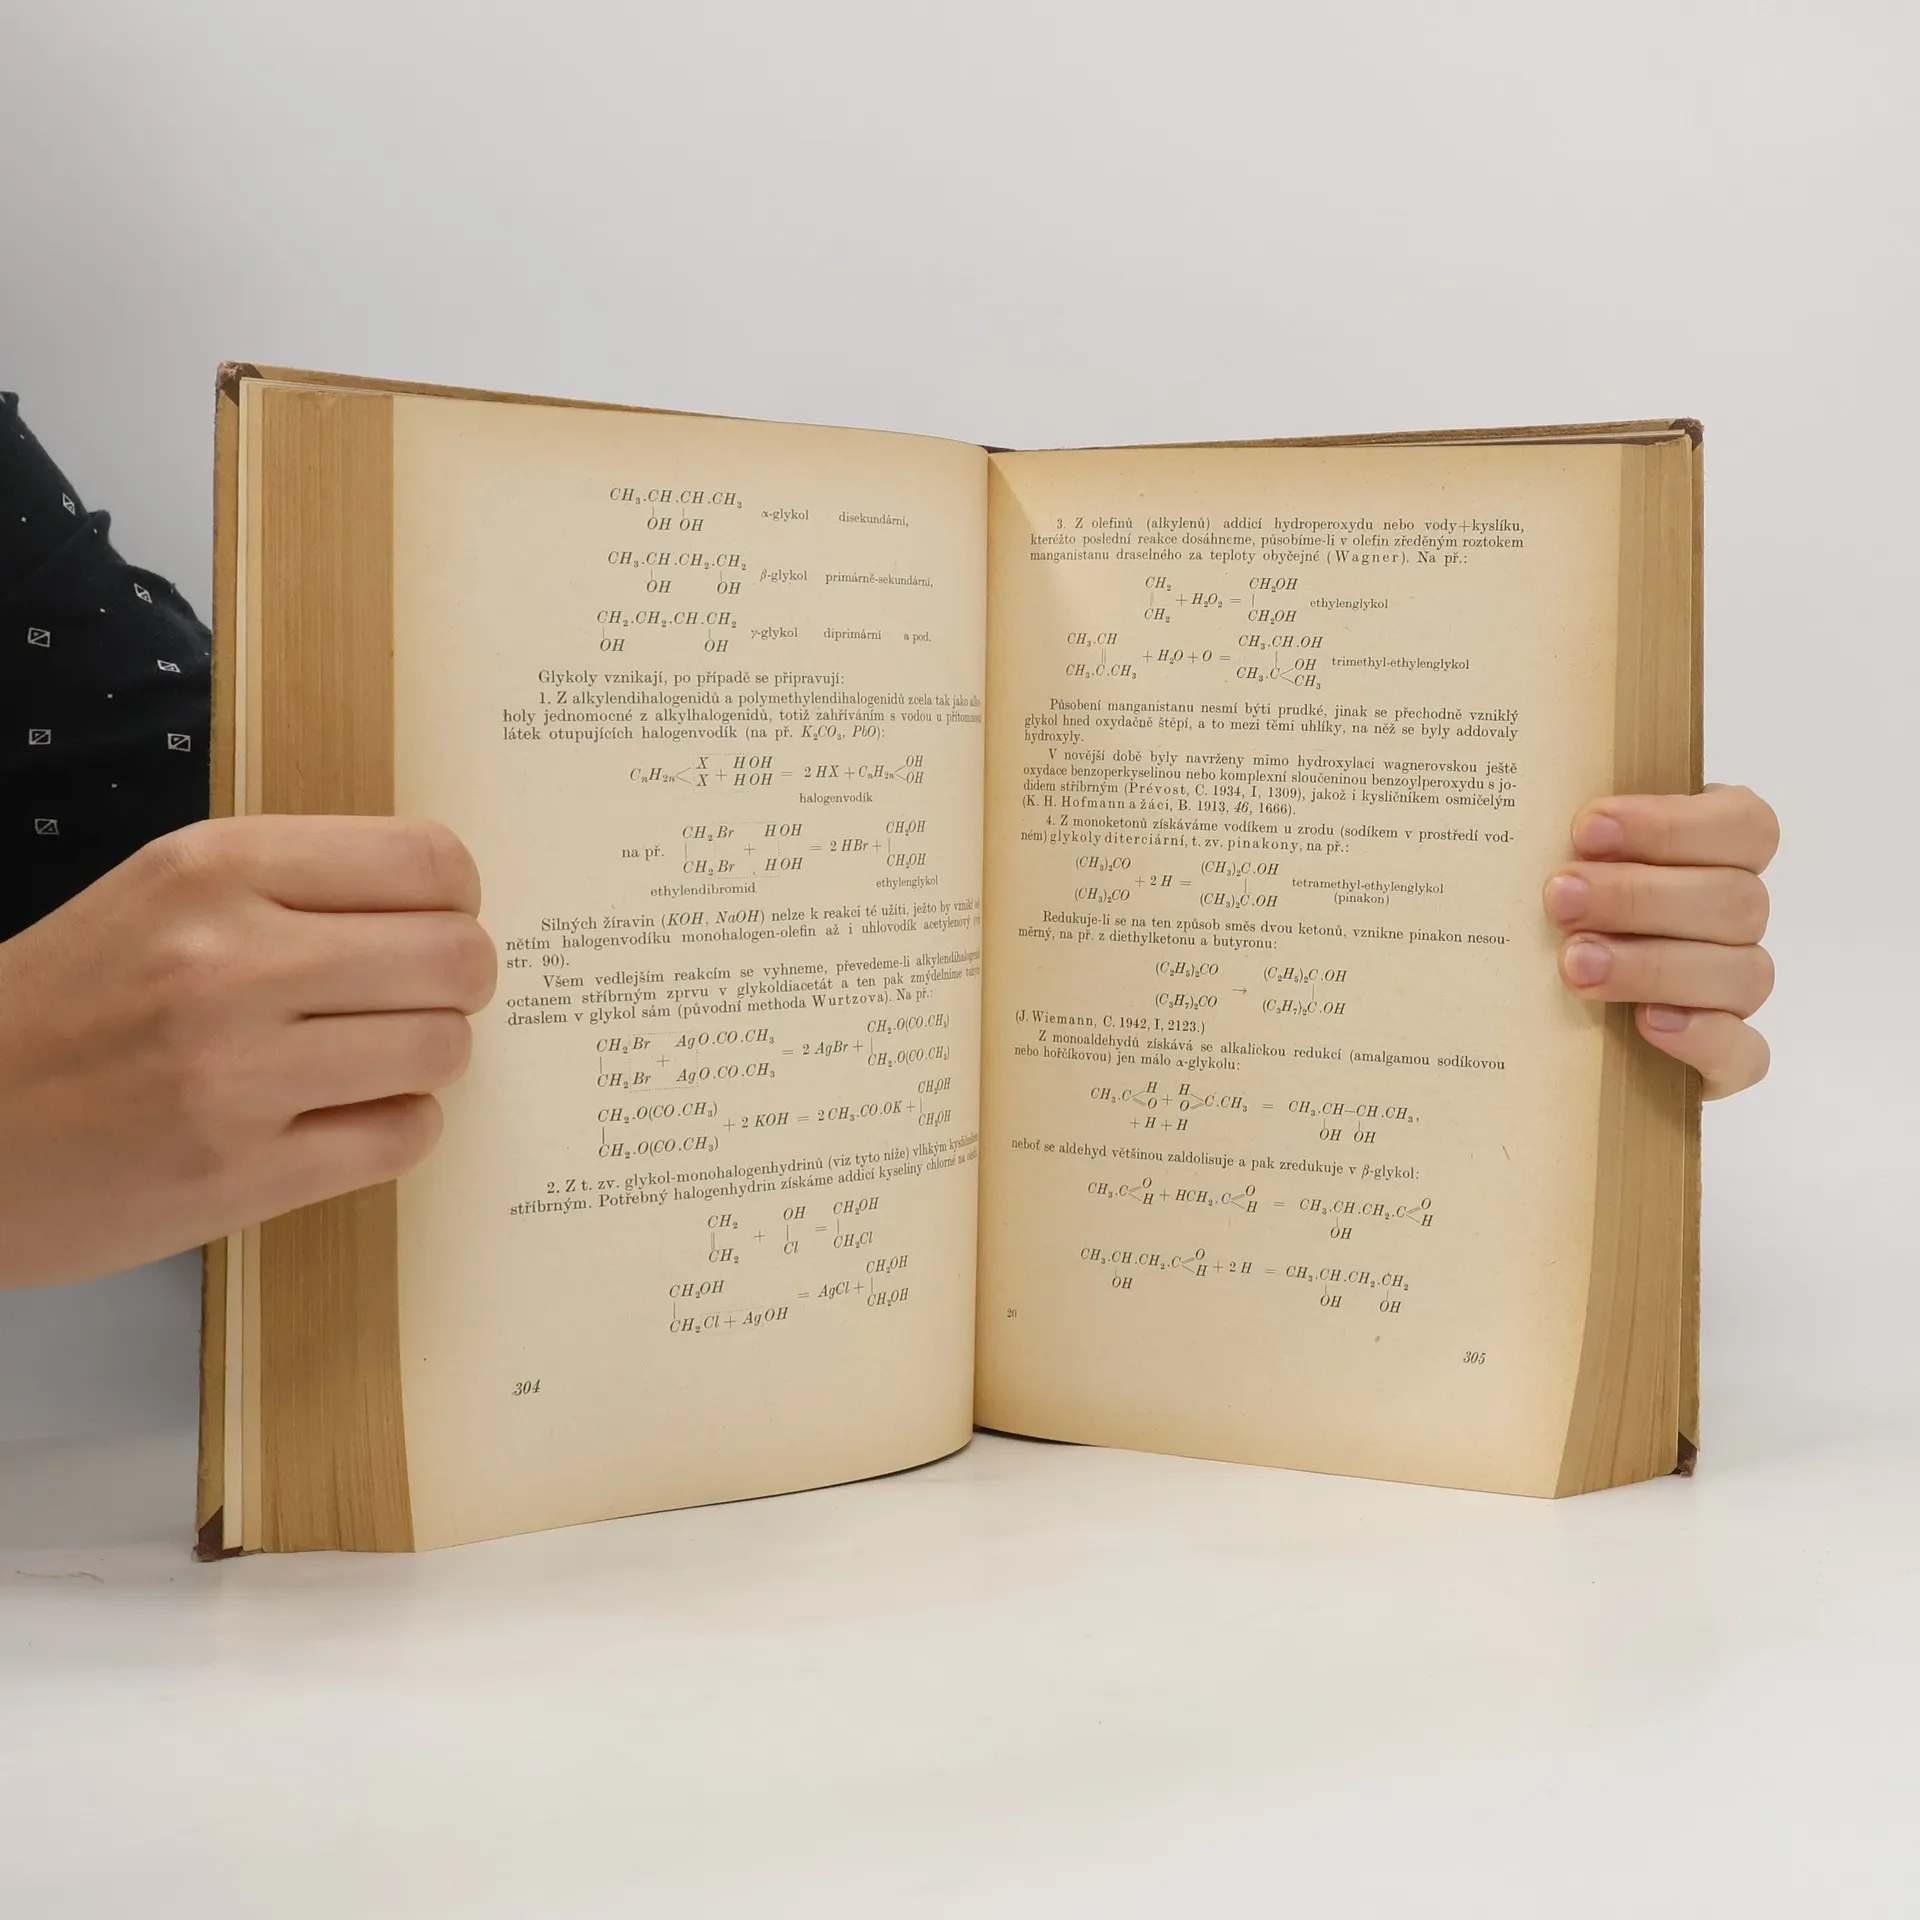 CH₃.CH.CH.CH₃
OH OH
α-glykol disekundární,
CH₃.CH.CH₂.CH₂
OH OH
β-glykol primárně-sekundární,
CH₂.CH₂.CH.CH₂
OH OH
γ-glykol diprimární a pod.
Glykoly vznikají, po případě se připravují:
1. Z alkylendihalogenidů a polymethylendihalogenidů zcela tak jako
holy jednomocné z alkylhalogenidů, totiž zahříváním s vodou u
látek otupujících halogenvodík (na př. K₂CO₃, PbO):
CₙH₂ₙ< X X + HOH HOH = 2 HX + CₙH₂ₙ< OH OH
halogenvodík
CH₂Br HOH CH₂OH
na př. | + = 2 HBr + |
CH₂Br HOH CH₂OH
ethylendibromid ethylenglykol
Silných žíravin (KOH, NaOH) nelze k reakci té užíti, ježto by
nětím halogenvodíku monohalogen-olefin až i uhlovodík acetylenový
str. 90).
Všem vedlejším reakcím se vyhneme, převedeme-li
octanem stříbrným zprvu v glykoldiacetát a ten pak zmýdelníme
draslem v glykol sám (původní methoda Wurtzova). Na př.:
CH₂Br AgO.CO.CH₃ CH₂.O(CO.CH₃)
| + = 2 AgBr + |
CH₂Br AgO.CO.CH₃ CH₂.O(CO.CH₃)
CH₂.O(CO.CH₃) CH₂OH
| + 2 KOH = 2 CH₃.CO.OK + |
CH₂.O(CO.CH₃) CH₂OH
2. Z t. zv. glykol-monohalogenhydrinů (viz tyto níže) vlhkým
stříbrným. Potřebný halogenhydrin získáme addicí kyseliny chlorné na
CH₂ OH CH₂OH
‖ + | = |
CH₂ Cl CH₂Cl
CH₂OH CH₂OH
| = AgCl + |
CH₂Cl + AgOH CH₂OH
304
3. Z olefinů (alkylenů) addicí hydroperoxydu nebo vody+kyslíku,
kteréžto poslední reakce dosáhneme, působíme-li v olefin zředěným roztokem
manganistanu draselného za teploty obyčejné (Wagner). Na př.:
CH₂ CH₂OH
‖ + H₂O₂ = | ethylenglykol
CH₂ CH₂OH
CH₃.CH CH₃.CH.OH
‖ + H₂O + O = | trimethyl-ethylenglykol
CH₃.C.CH₃ CH₃.C< OH CH₃
Působení manganistanu nesmí býti prudké, jinak se přechodně vzniklý
glykol hned oxydačně štěpí, a to mezi těmi uhlíky, na něž se byly addovaly
hydroxyly.
V novější době byly navrženy mimo hydroxylaci wagnerovskou ještě
oxydace benzoperkyselinou nebo komplexní sloučeninou benzoylperoxydu s jo-
didem stříbrným (Prévost, C. 1934, I, 1309), jakož i kysličníkem osmičelým
(K. H. Hofmann a žáci, B. 1913, 46, 1666).
4. Z monoketonů získáváme vodíkem u zrodu (sodíkem v prostředí vod-
ném) glykoly diterciární, t. zv. pinakony, na př.:
(CH₃)₂CO (CH₃)₂C.OH
+ 2 H = | tetramethyl-ethylenglykol
(CH₃)₂CO (CH₃)₂C.OH (pinakon)
Redukuje-li se na ten způsob směs dvou ketonů, vznikne pinakon nesou-
měrný, na př. z diethylketonu a butyronu:
(C₂H₅)₂CO (C₂H₅)₂C.OH
→ |
(C₃H₇)₂CO (C₃H₇)₂C.OH
(J. Wiemann, C. 1942, I, 2123.)
Z monoaldehydů získává se alkalickou redukcí (amalgamou sodíkovou
nebo hořčíkovou) jen málo α-glykolu:
CH₃.C< H O + H O >C.CH₃ = CH₃.CH—CH.CH₃,
+ H + H OH OH
neboť se aldehyd většinou zaldolisuje a pak zredukuje v β-glykol:
CH₃.C< O H + HCH₂.C< O H = CH₃.CH.CH₂.C< O H
OH
CH₃.CH.CH₂.C< O H + 2 H = CH₃.CH.CH₂.CH₂
OH OH OH
20
305